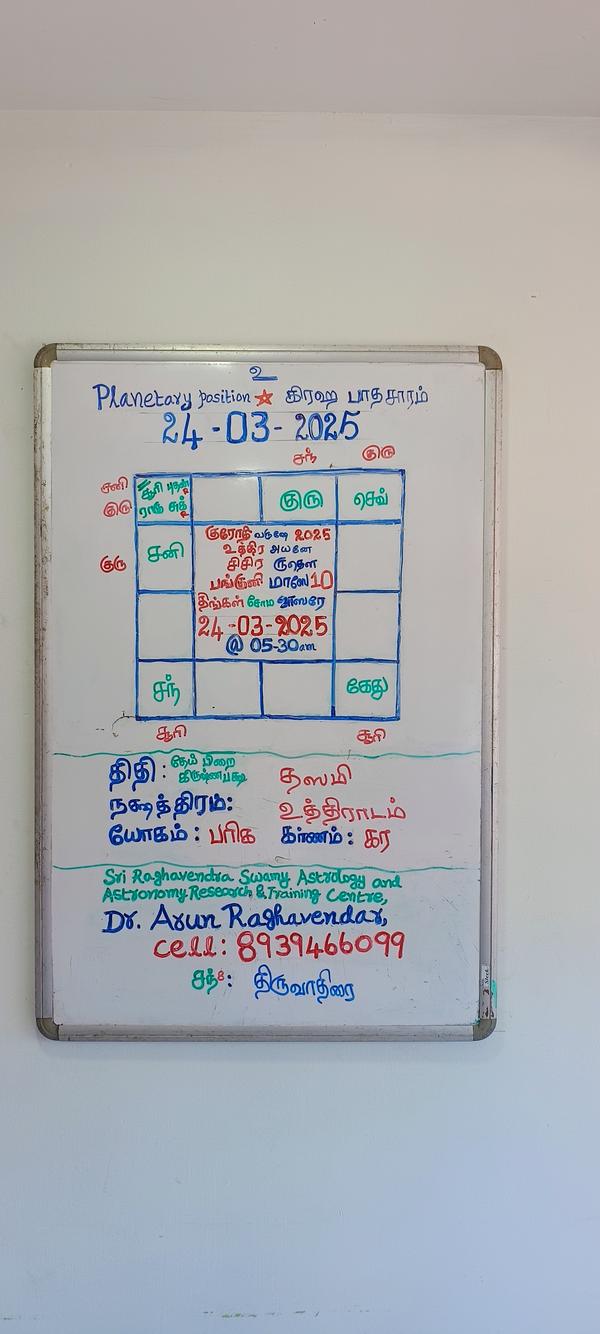 உ
Planetary position ☆ கிரஹ பாதசாரம்
24-03-2025
சந் குரு
சனி
குரு
சூரி புதன் R
ராகு சுக் R
குரு
செவ்
குரு
சனி
குரோதி வருஷே 2025
உத்திர அயனே
சிசிர ருதௌ
பங்குனி மாஸே 10
திங்கள் சோம வாஸரே
24-03-2025
@ 05-30am
சந்
கேது
சூரி சூரி
திதி: தேய் பிறை கிருஷ்ணபக்ஷ தஸமி
நக்ஷத்திரம்: உத்திராடம்
யோகம்: பரிக கரணம்: கர
Sri Raghavendra Swamy Astrology and
Astronomy Research & Training Centre,
Dr. Arun Raghavendar,
cell: 8939466099
சந்8: திருவாதிரை